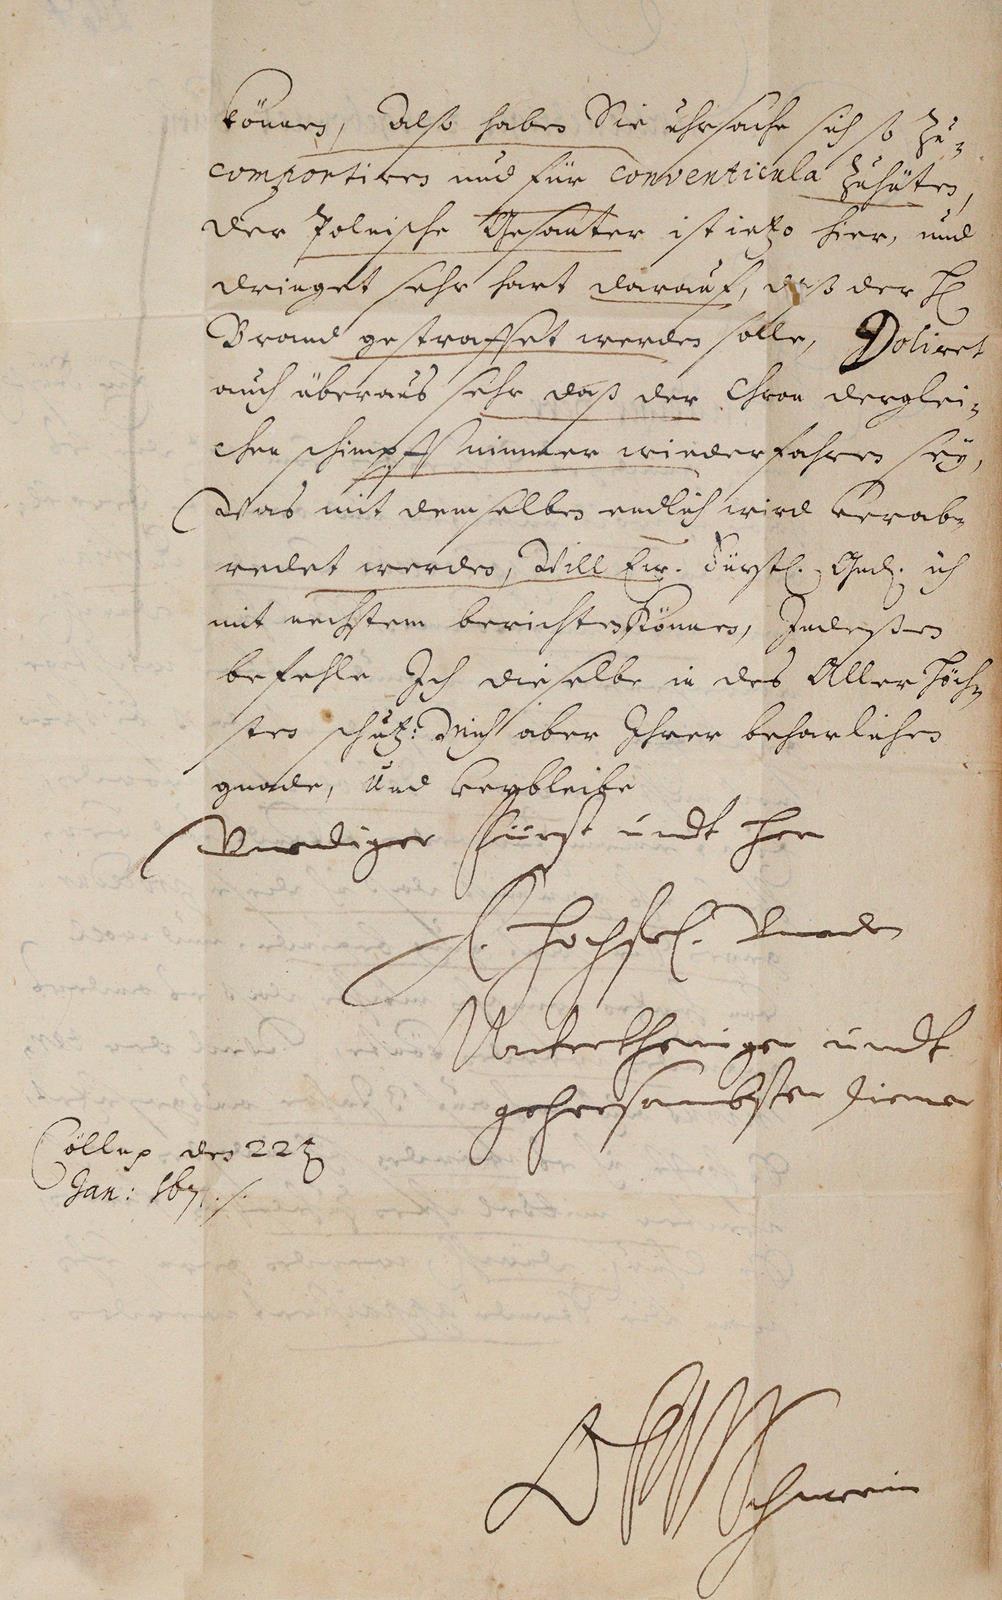 können, Also haben Sie uhrsache sich so zu-
comportiren und für conventicula zuhüten,
der Polnische Gesanter ist ietzo hier, und
dringet sehr hart darauf, daß der H
Brand gestraffet werden solle, Doliret
auch überaus sehr daß der Chron derglei-
chen schimpff nimmer wiederfahren sey,
Was mit demselben endlich wird verab-
redet werden, Will Ew. Fürstl. Gnd. ich
mit nechstem berichten können, Indeßen
befehle Ich dieselbe in des Aller Höch-
sten schutz: Mich aber Ihrer beharlichen
gnade, Und verbleibe
Gnediger Fürst undt Her
E. Hochfrl. Gnaden
Untertheniger undt
gehorsambster diener
Cölln den 22t
Jan: 167
Schwerin